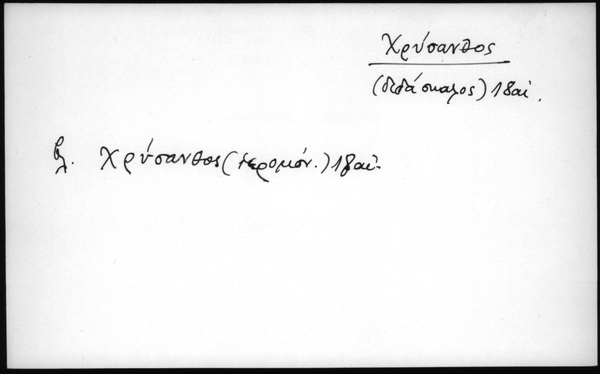 Χρύσανθος
(διδάσκαλος) 18 αἰ.
βλ. Χρύσανθος (ἱερομόν.) 18 αἰ.